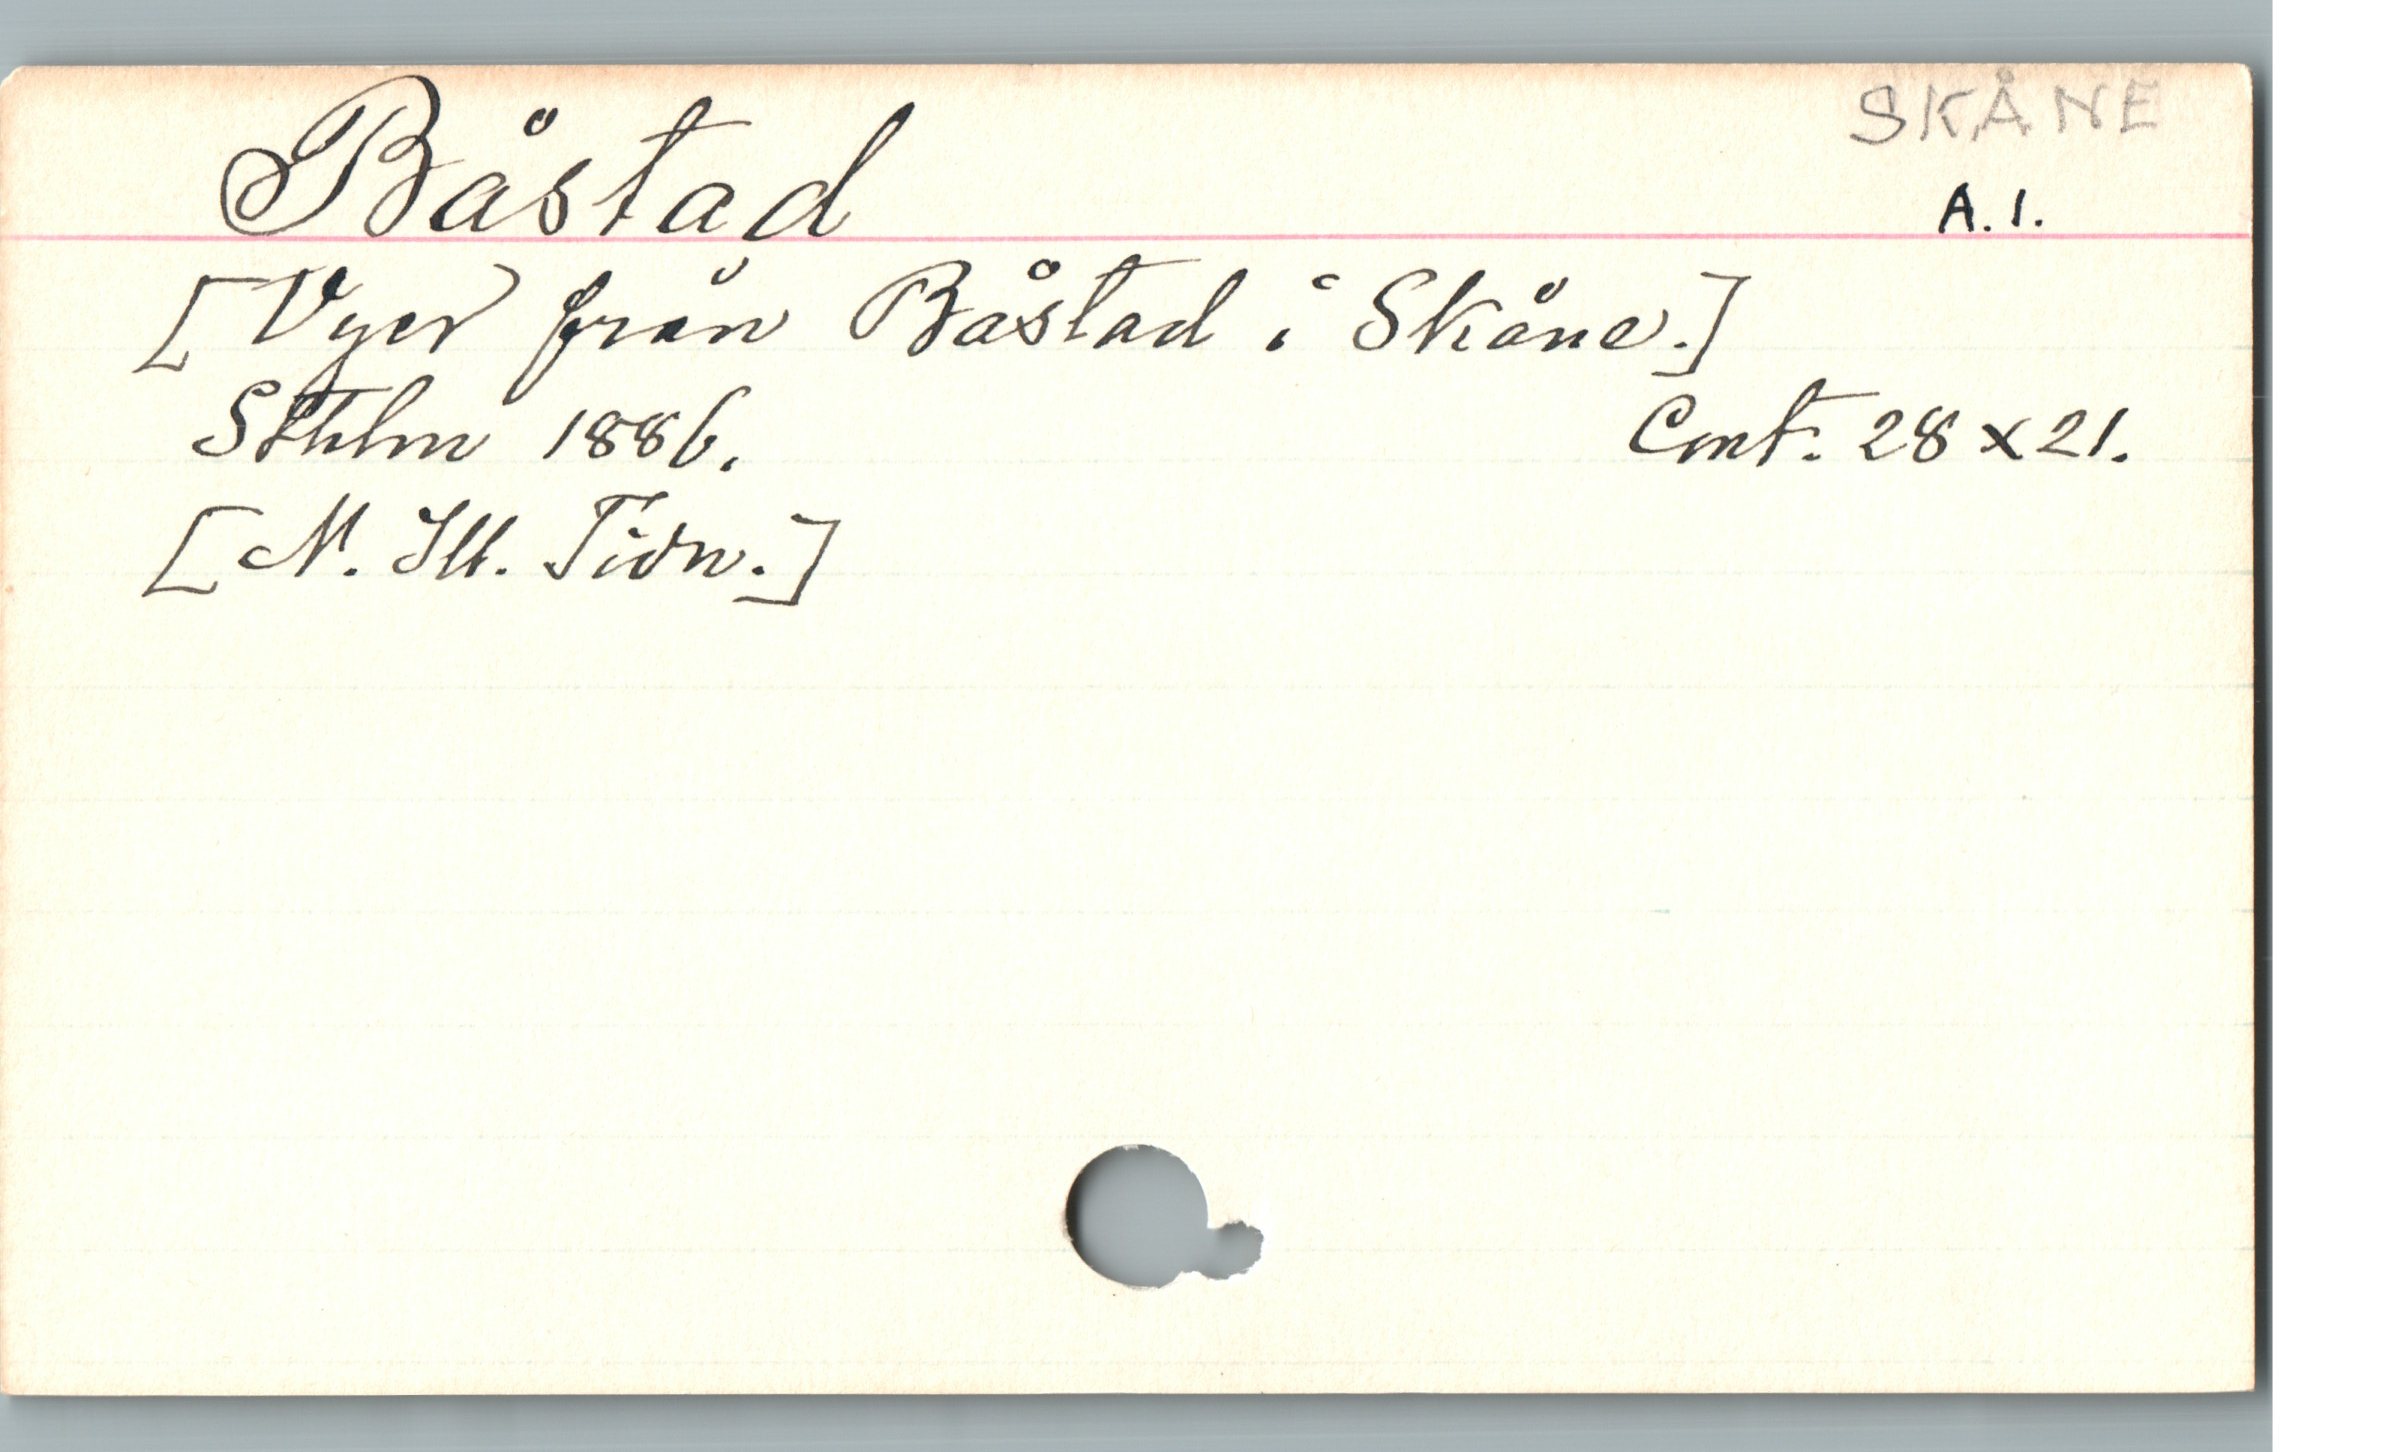 SKÅNE
Båstad A. 1.
[Vyer från Båstad i Skåne.]
Sthlm 1886. Cmt. 28 x 21.
[N. Ill. Tidn.]